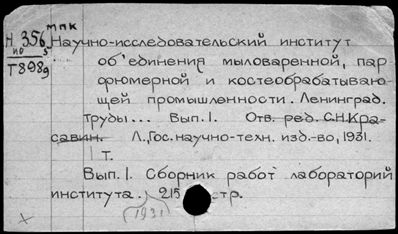 мпк
Н 356 Научно-исследовательский институт
по 5
Т8989 об'единения мыловаренной, пар
фюмерной и костеобрабатываю-
щей промышленности. Ленинград.
Труды... Вып. I. Отв. ред. С.Н. Кра-
савин. Л., Гос. научно-техн. изд-во, 1931.
I т.
Вып. I. Сборник работ лабораторий
института. 215 стр.
(1931)
x